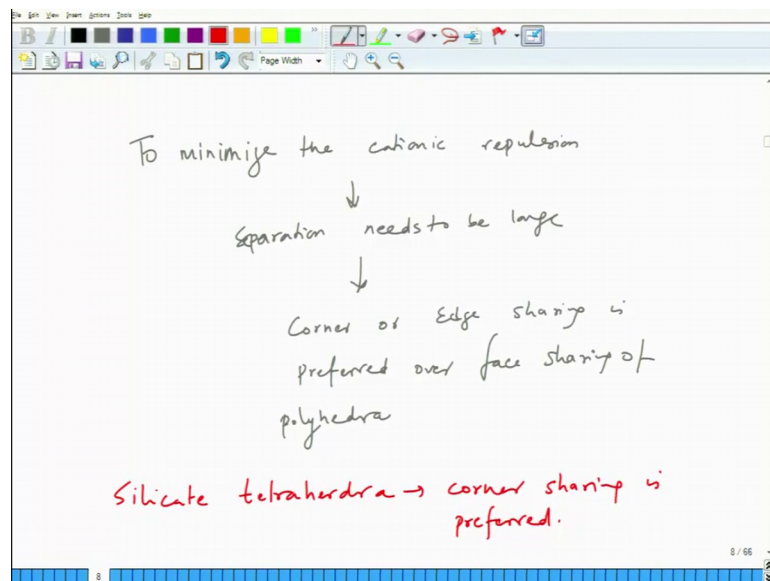 File Edit View Insert Actions Tools Help
B I
Page Width
To minimize the cationic repulsion
Separation needs to be large
Corner or Edge sharing is
preferred over face sharing of
polyhedra
Silicate tetraherdra → corner sharing is
preferred.
8 / 66
8